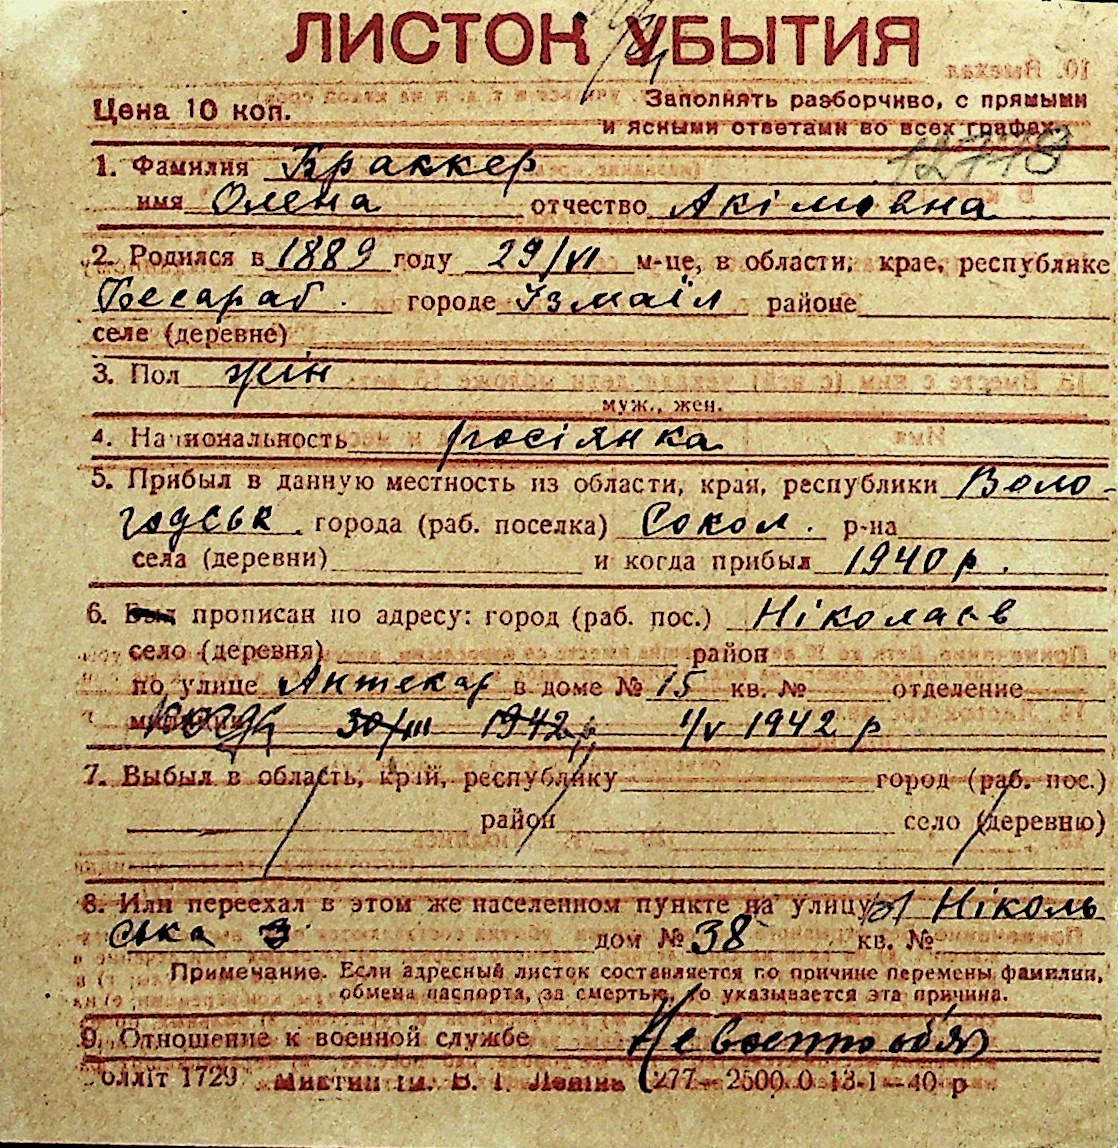 ЛИСТОК УБЫТИЯ
Цена 10 коп.
Заполнять разборчиво, с прямыми
и ясными ответами во всех графах.
1. Фамилия Браккер
имя Олена отчество Акімовна
2. Родился в 1889 году 29/VI м-це, в области, крае, республике
Бесараб. городе Ізмаїл районе
селе (деревне)
3. Пол жін
муж., жен.
4. Национальность росіянка
5. Прибыл в данную местность из области, края, республики Воло-
годськ. города (раб. поселка) Сокол. р-на
села (деревни) и когда прибыл 1940 р.
6. Был прописан по адресу: город (раб. пос.) Ніколаєв
село (деревня) район
по улице Аптекар в доме № 15 кв. № отделение
милиции 30/III 1942 р 1/V 1942 р
7. Выбыл в область, край, республику город (раб. пос.)
район село (деревню)
8. Или переехал в этом же населенном пункте на улицу Ніколь
ська 3 дом № 38 кв. №
Примечание. Если адресный листок составляется по причине перемены фамилии,
обмена паспорта, за смертью, то указывается эта причина.
9. Отношение к военной службе Не
оліт 1729 ім. В. І. Леніна 277—2500.0 13-1—40 р